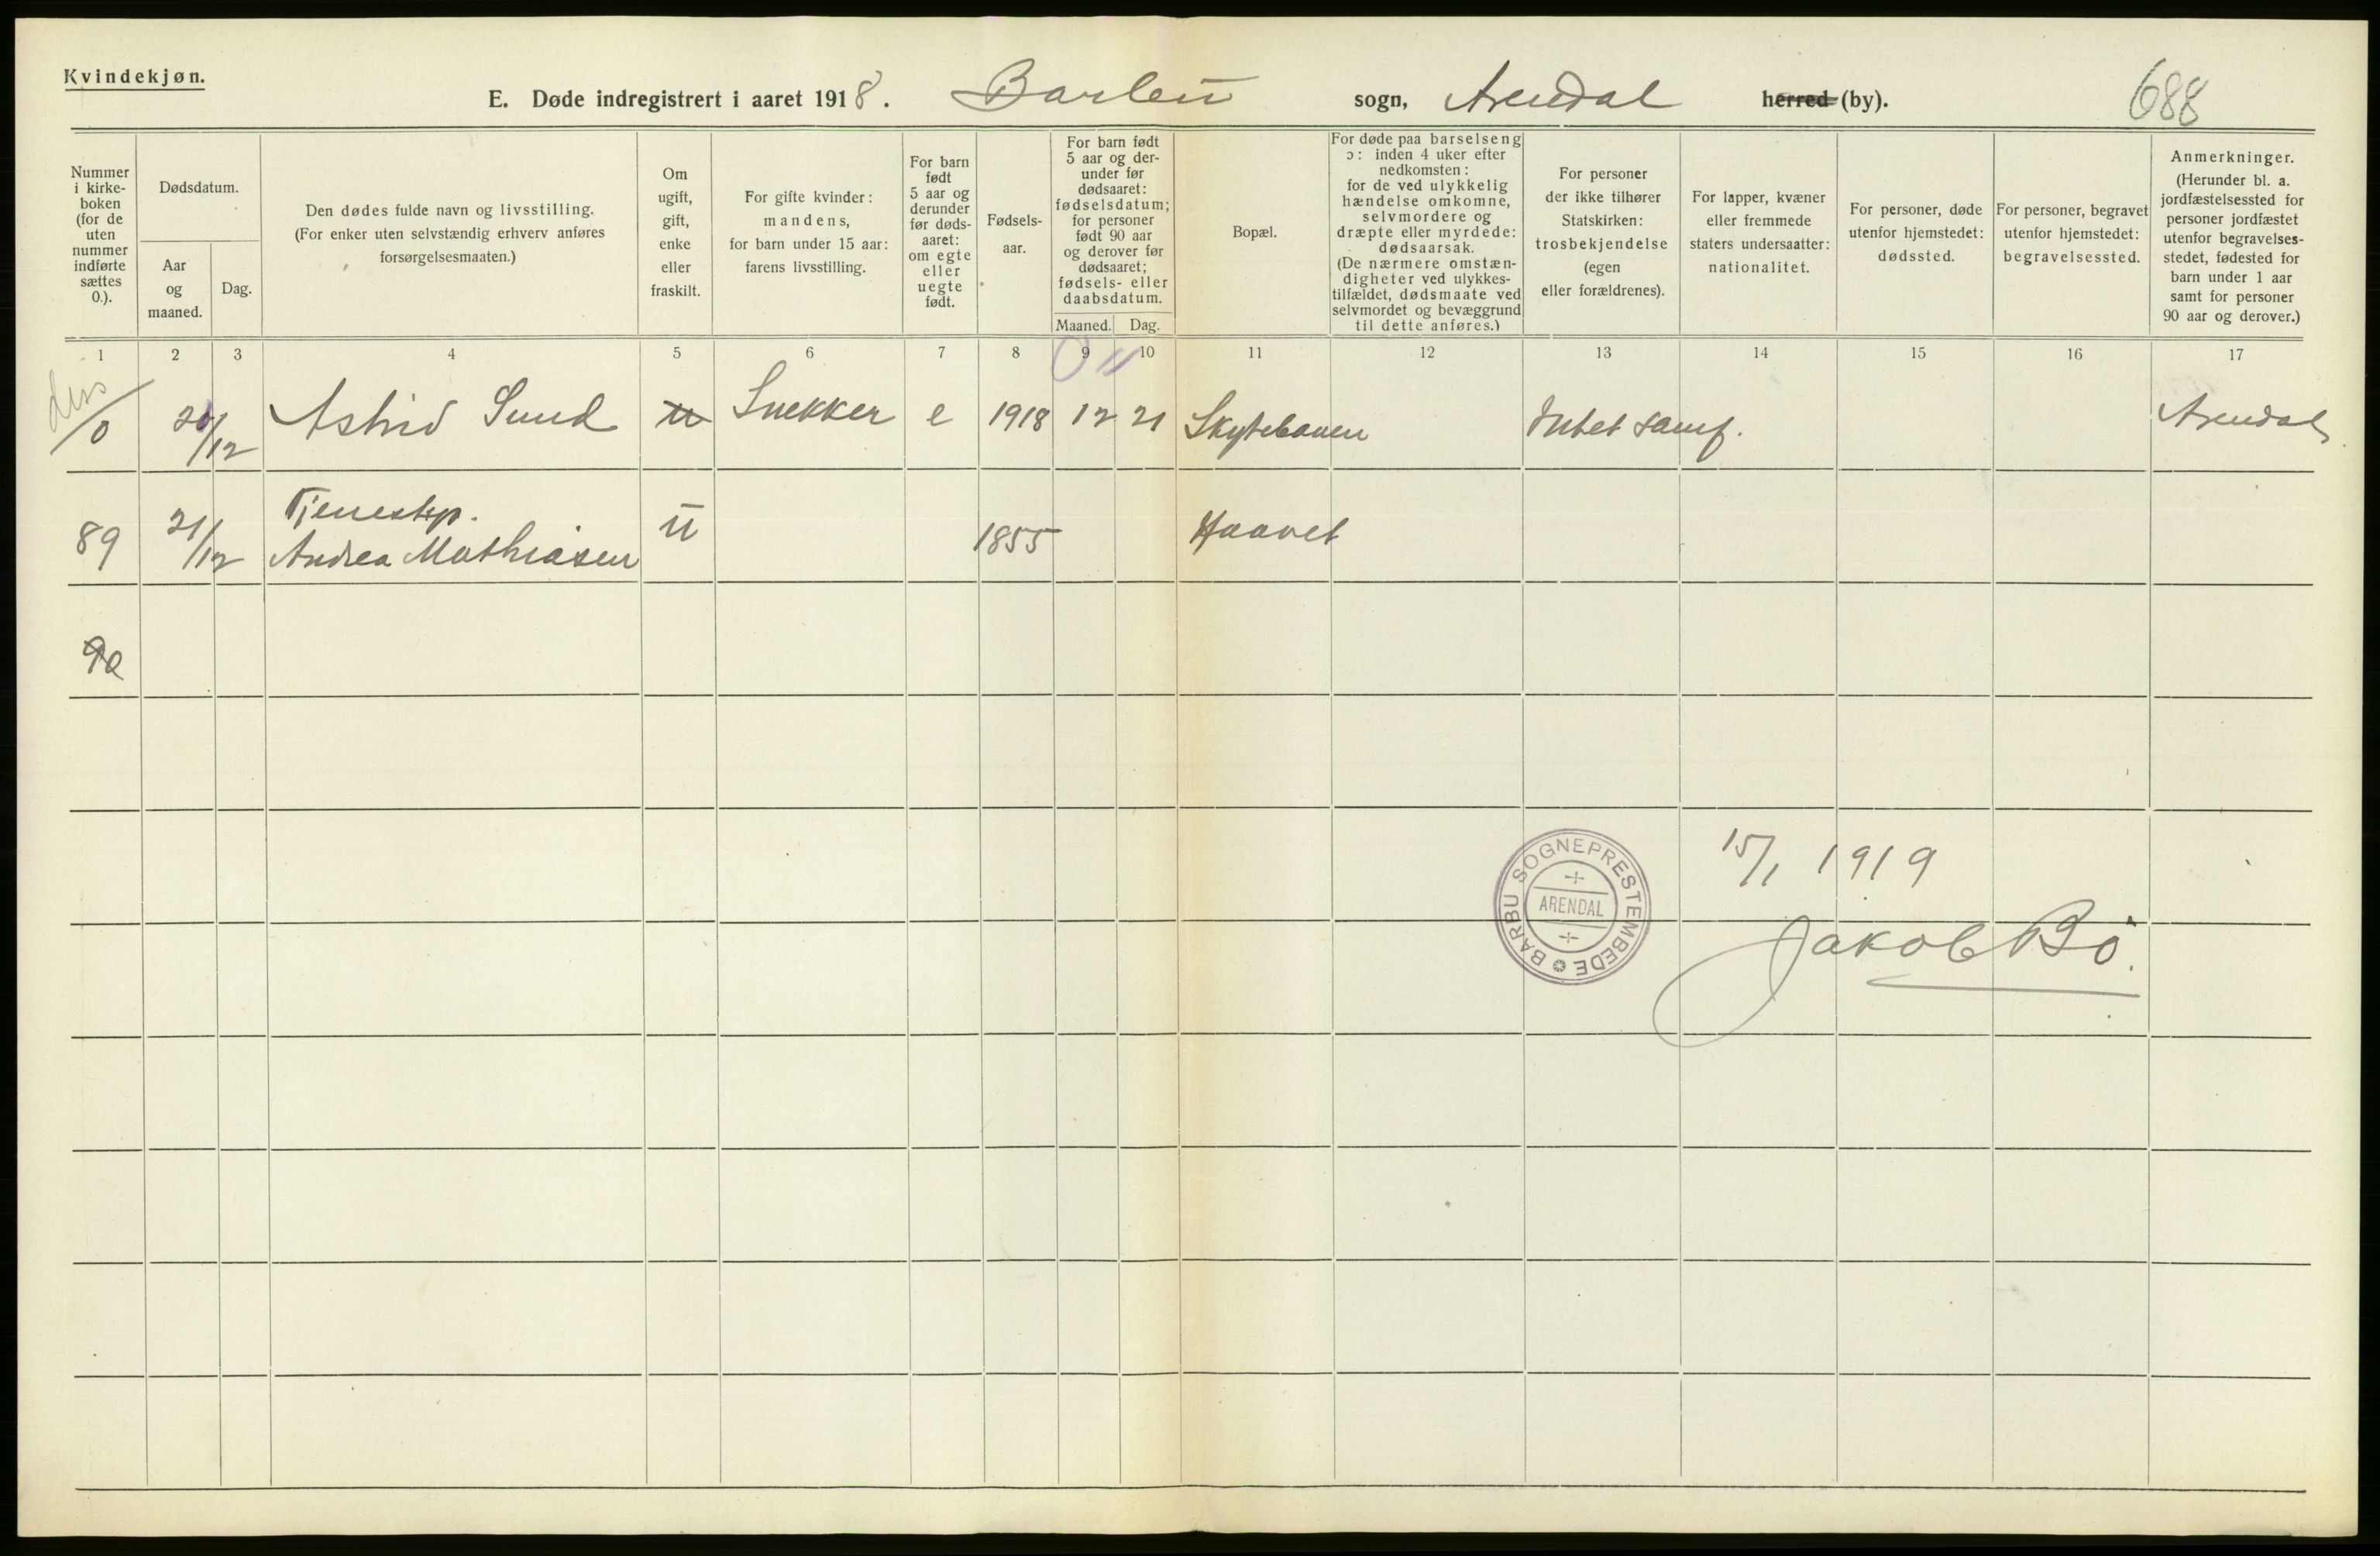 Kvindekjøn.
E. Døde indregistrert i aaret 1918. Barbu sogn, Arendal herred (by). 688
Nummer i kirke-boken (for de uten nummer indførte sættes 0.).
Dødsdatum.
Aar og maaned.
Dag.
Den dødes fulde navn og livsstilling.
(For enker uten selvstændig erhverv anføres forsørgelsesmaaten.)
Om ugift, gift, enke eller fraskilt.
For gifte kvinder: mandens, for barn under 15 aar: farens livsstilling.
For barn født 5 aar og derunder før døds-aaret: om egte eller uegte født.
Fødsels-aar.
For barn født 5 aar og der-under før dødsaaret: fødselsdatum; for personer født 90 aar og derover før dødsaaret; fødsels- eller daabsdatum.
Maaned. Dag.
Bopæl.
For døde paa barselseng ɔ: inden 4 uker efter nedkomsten: for de ved ulykkelig hændelse omkomne, selvmordere og dræpte eller myrdede: dødsaarsak. (De nærmere omstæn-digheter ved ulykkes-tilfældet, dødsmaate ved selvmordet og bevæggrund til dette anføres.)
For personer der ikke tilhører Statskirken: trosbekjendelse (egen eller forældrenes).
For lapper, kvæner eller fremmede staters undersaatter: nationalitet.
For personer, døde utenfor hjemstedet: dødssted.
For personer, begravet utenfor hjemstedet: begravelsessted.
Anmerkninger. (Herunder bl. a. jordfæstelsessted for personer jordfæstet utenfor begravelses-stedet, fødested for barn under 1 aar samt for personer 90 aar og derover.)
1 2 3 4 5 6 7 8 9 10 11 12 13 14 15 16 17
0 /12 Astrid Sund u Snekker e 1918 12 21 Skytebanen Intet samf. Arendal
89 21/12 Tjenestep. Andrea Mathiasen u 1855 Haavet
15/1 1919
BARBU SOGNEPRESTEMBEDE
ARENDAL
Jakob Bö.